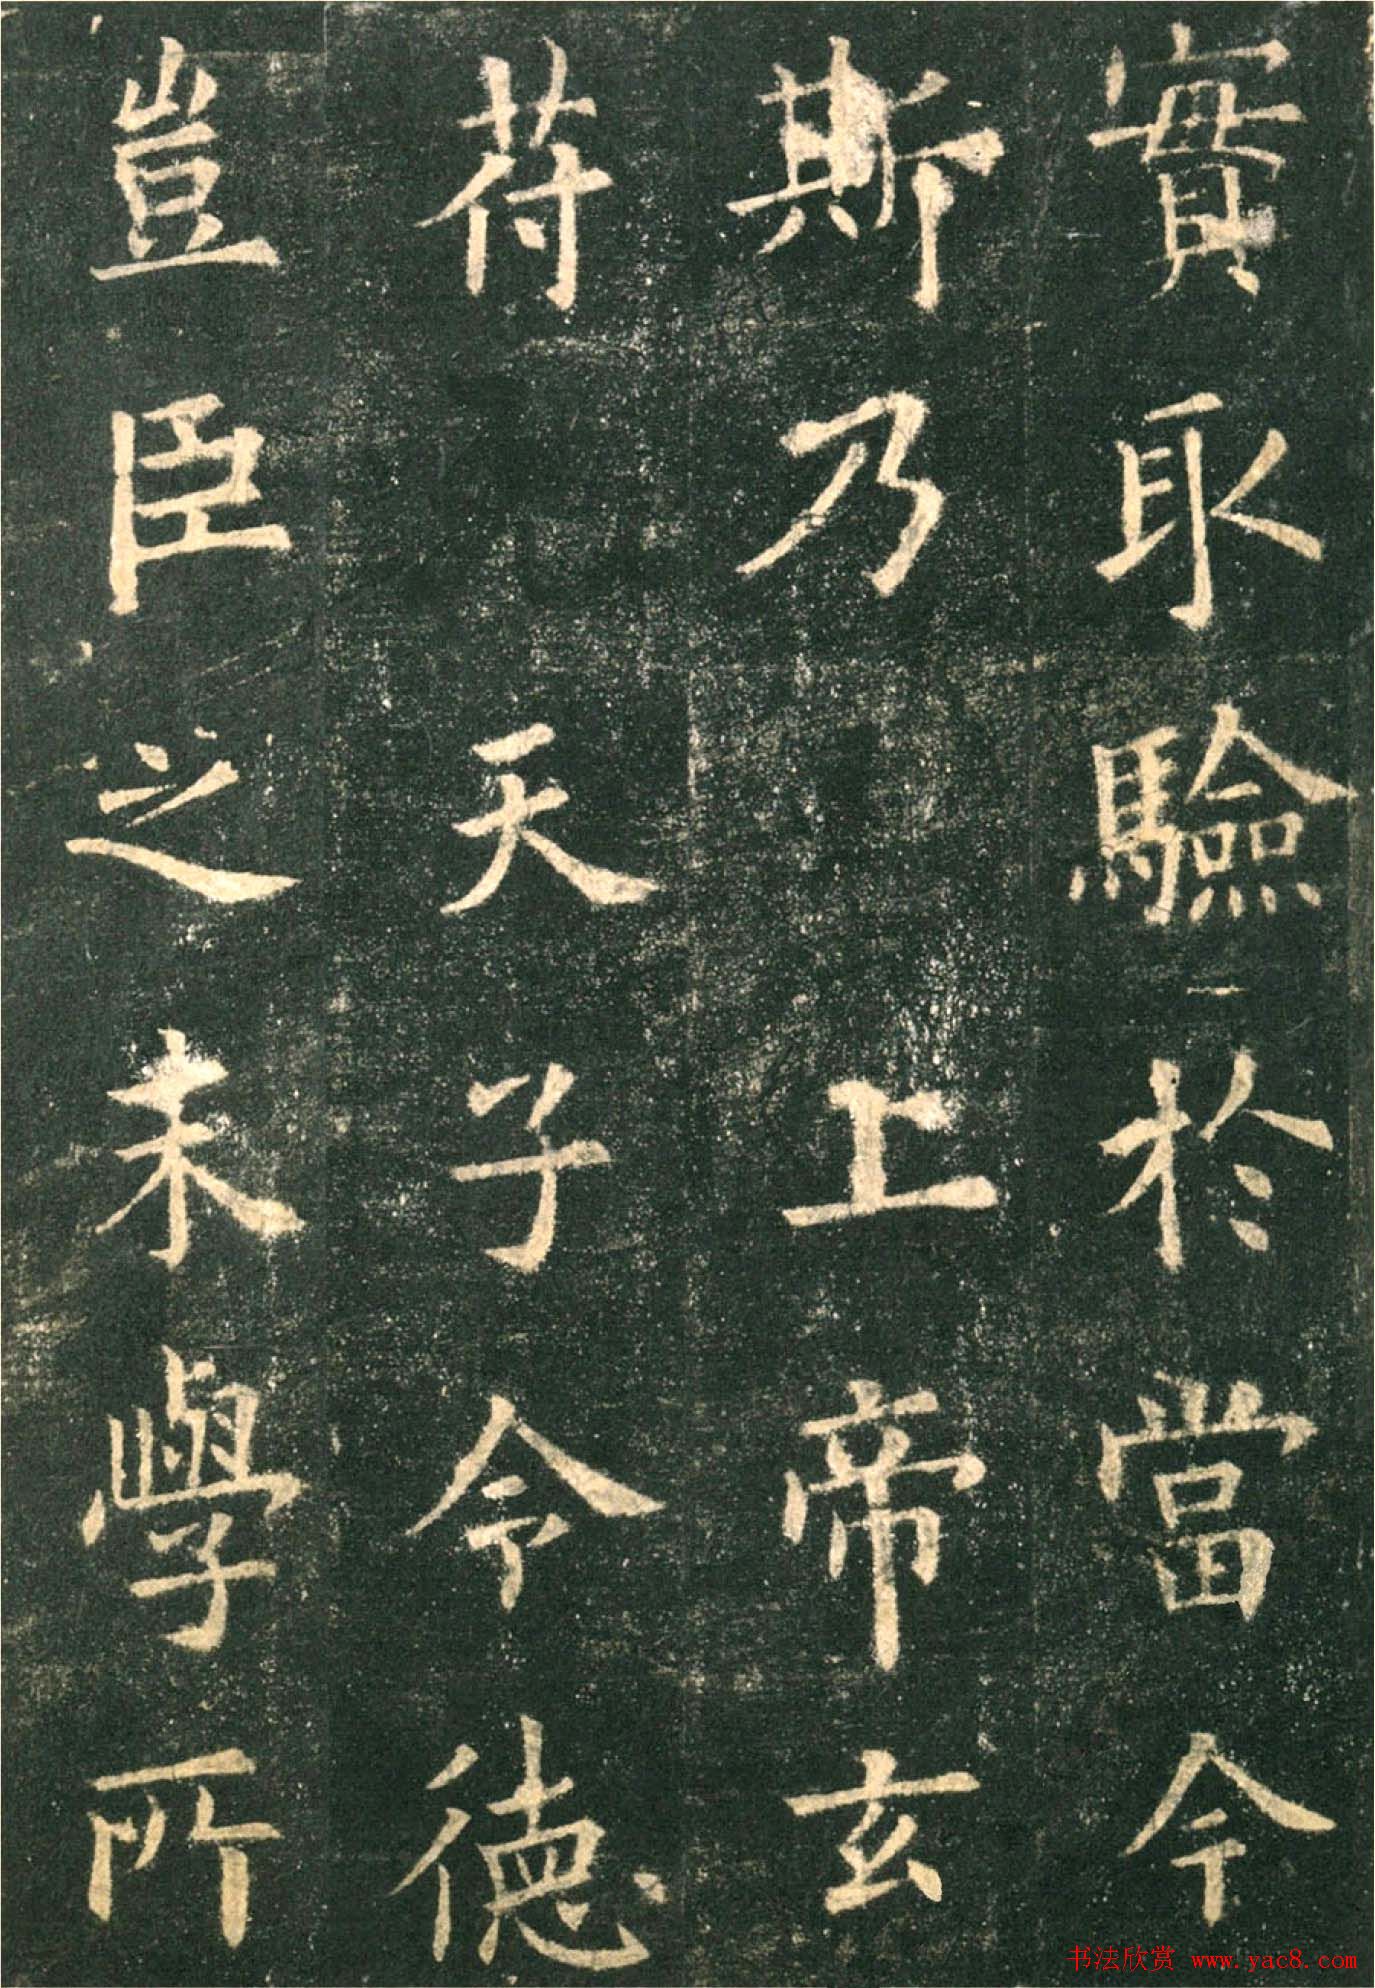 實取驗於當今
斯乃上帝玄
苻天子令德
豈臣之末學所
书法欣赏 www.yac8.com